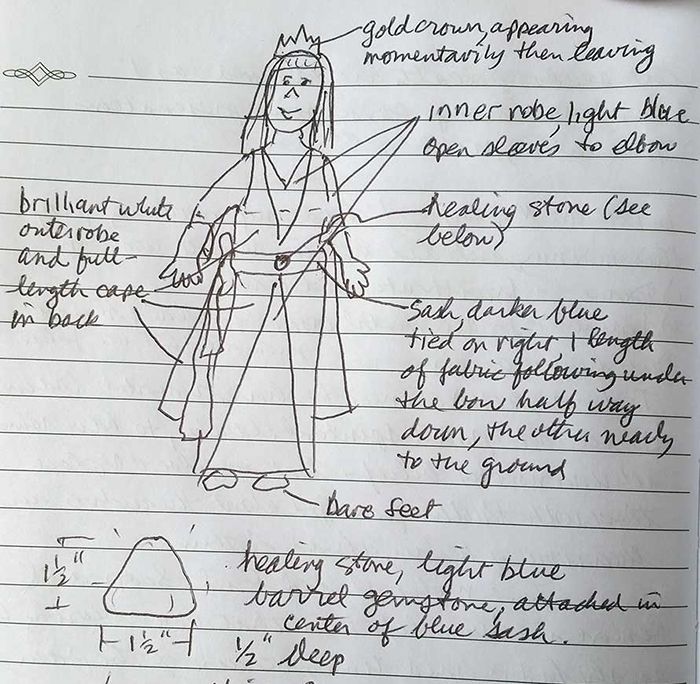 gold crown, appearing
momentarily then leaving
inner robe, light blue
open sleeves to elbow
brilliant white
outer robe
and full-
length cape
in back
healing stone (see
below)
sash, darker blue
tied on right, 1 length
of fabric following under
the bow half way
down, the other nearly
to the ground
bare feet
1½"
1½"
healing stone, light blue
barrel gemstone, attached in
center of blue sash.
½" deep